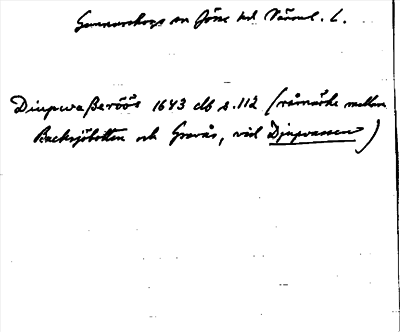 Gunnarskogs sn Jösse hd Värml. l.
Diupwaßeröös 1643 db s. 112 (råmärke mellan
Backsjöbotten och Gravås, vid Djupvassen)